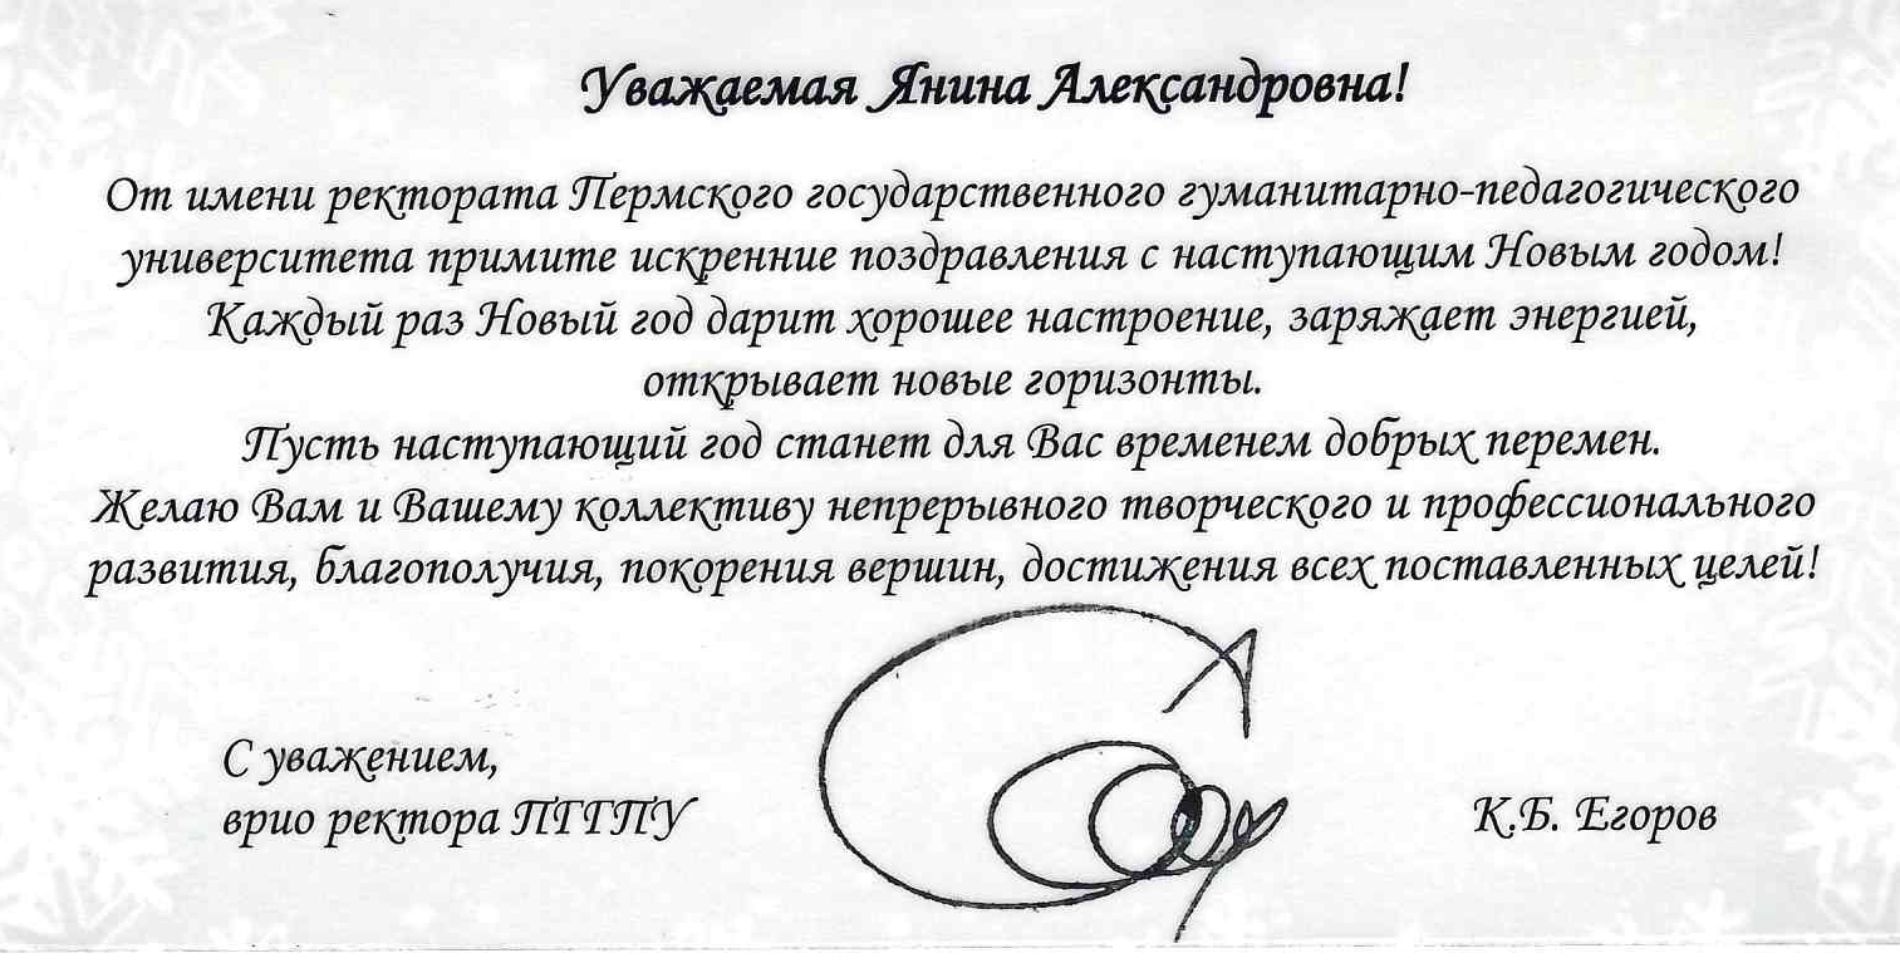 Уважаемая Янина Александровна!
От имени ректората Пермского государственного гуманитарно-педагогического
университета примите искренние поздравления с наступающим Новым годом!
Каждый раз Новый год дарит хорошее настроение, заряжает энергией,
открывает новые горизонты.
Пусть наступающий год станет для Вас временем добрых перемен.
Желаю Вам и Вашему коллективу непрерывного творческого и профессионального
развития, благополучия, покорения вершин, достижения всех поставленных целей!
С уважением,
врио ректора ПГГПУ К.Б. Егоров